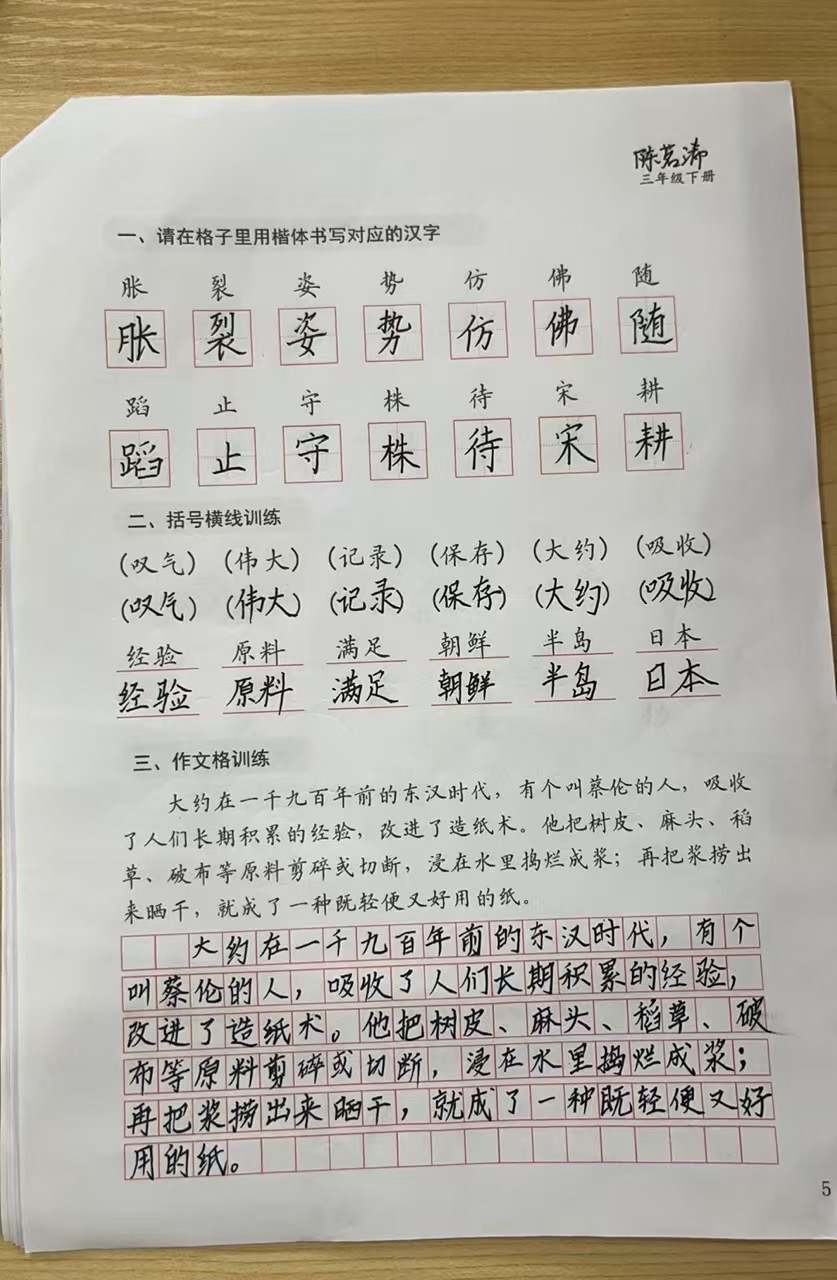 陈茗
三年级下册
一、请在格子里用楷体书写对应的汉字
胀 裂 姿 势 仿 佛 随
胀 裂 姿 势 仿 佛 随
蹈 止 守 株 待 宋 耕
蹈 止 守 株 待 宋 耕
二、括号横线训练
(叹气) (伟大) (记录) (保存) (大约) (吸收)
(叹气) (伟大) (记录) (保存) (大约) (吸收)
经验 原料 满足 朝鲜 半岛 日本
经验 原料 满足 朝鲜 半岛 日本
三、作文格训练
大约在一千九百年前的东汉时代，有个叫蔡伦的人，吸收
了人们长期积累的经验，改进了造纸术。他把树皮、麻头、稻
草、破布等原料剪碎或切断，浸在水里捣烂成浆；再把浆捞出
来晒干，就成了一种既轻便又好用的纸。
大约在一千九百年前的东汉时代，有个
叫蔡伦的人，吸收了人们长期积累的经验，
改进了造纸术。他把树皮、麻头、稻草、破
布等原料剪碎或切断，浸在水里捣烂成浆；
再把浆捞出来晒干，就成了一种既轻便又好
用的纸。
5